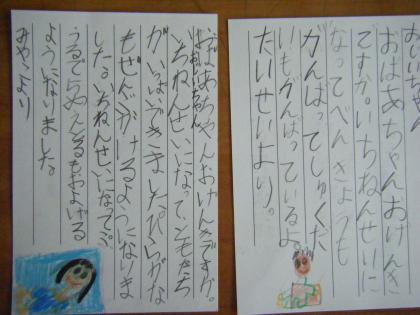 おじいちゃん
おばあちゃんおげんき
ですか。いちねんせいに
なってべんきょうも
がんばってしゅくだ
いもがんばっているよ
たいせいより。
おばあちゃんおげんきですか。
おじいちゃん
いちねんせいになって、ともだち
がいっぱいできました。ひらがな
もぜんぶかけるようになりま
した。いちねんせいになってぷ
うるで めえとるもおよげる
ようになりました。
みやより